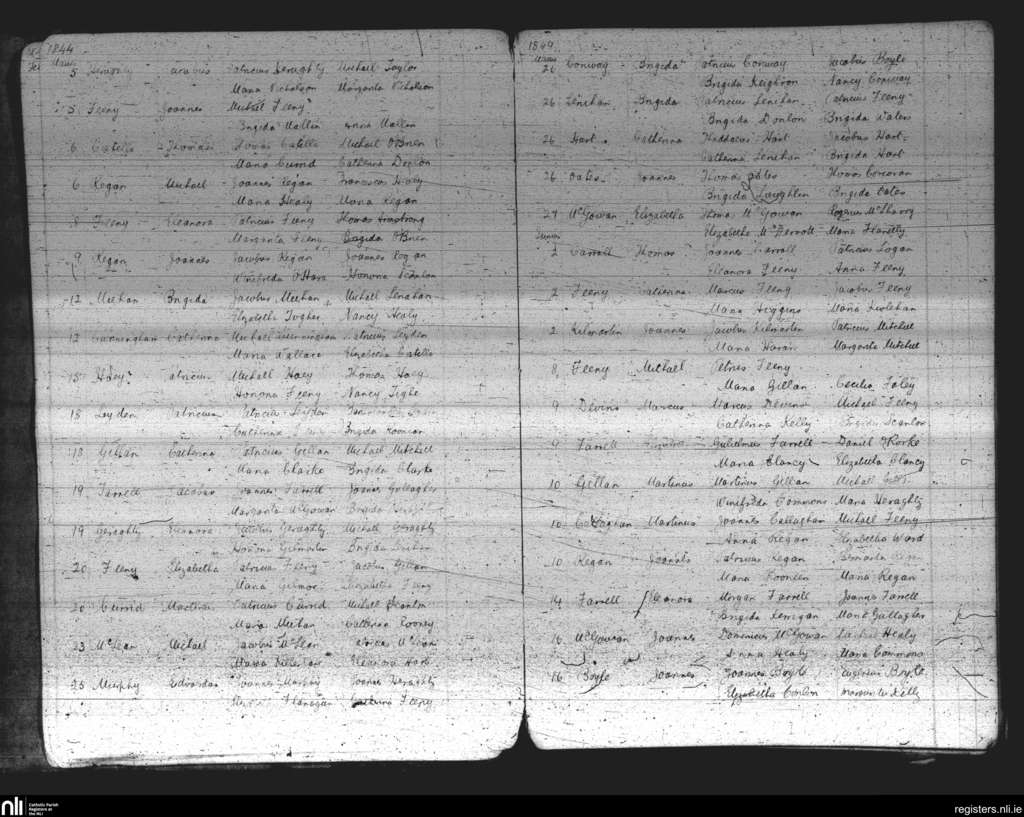 1844
5 Geraghty Jacobus Patricius Geraghty Michael Taylor
Maria Nicholson Margarita Nicholson
5 Feeny Joannes Michael Feeny
Brigida Mallin Anna Mallin
6 Costello Thomas Thomas Costello Michael O'Brien
Maria Currid Catherina
6 Regan Michael Joannes Regan Franciscus Healy
Maria Healy Maria Regan
8 Feeny Eleanora Patricius Feeny Thomas Armstrong
Margarita Feeny Brigida O'Brien
9 Regan Joannes Jacobus Regan Joannes Rogan
Winefreda O'Hara Honoria Scanlon
12 Meehan Brigida Jacobus Meehan Michael Lenehan
Elizabetha Tugher Nancy Healy
12 Cunningham Catherina Michael Cunningham Patricius Leyden
Maria Wallace Elizabetha Costello
15 Hoey Patricius Michael Hoey Thomas Hoey
Honoria Feeny Nancy Tighe
18 Leyden Patricius Patricius Leyden
Catherina Brigida Noonan
18 Gillan Catherina Patricius Gillan Michael Mitchell
Maria Clarke Brigida Clarke
19 Farrell Jacobus Joannes Farrell Joannes Gallagher
Margarita McGowan Brigida
19 Geraghty Eleanora Patricius Geraghty Michael Geraghty
Honoria Gilmartin Brigida
20 Feeny Elizabetha Patricius Feeny Jacobus Gillan
Maria Gilmor Elizabetha Feeny
20 Currid Matthew Patricius Currid Michael Scanlon
Maria Meehan Catherina Rooney
23 McLean Michael Jacobus McLean Patricius McLean
Maria Eleanora Hart
25 Murphy Edwardus Joannes Murphy Joannes Geraghty
Maria Flanagan Catherina Feeny
1844
26 Conway Brigida Patricius Conway Jacobus Boyle
Brigida Keighron Nancy Conway
26 Lenihan Brigida Patricius Lenihan Patricius Feeny
Brigida Donlon Brigida Waters
26 Hart Catherina Thaddaeus Hart Jacobus Hart
Catherina Lenehan Brigida Hart
26 Oates Joannes Thomas Oates Thomas Corcoran
Brigida Laughlin Brigida Oates
27 McGowan Elizabetha Thomas McGowan Rogerius McSharry
Elizabetha McDermott Maria Flanelly
Junius
2 Carroll Thomas Joannes Carroll Patricius Logan
Eleanora Feeny Anna Feeny
2 Feeny Catherina Marcus Feeny Jacobus Feeny
Maria Higgins Maria
2 Kilmartin Joannes Jacobus Kilmartin Patricius Mitchel
Maria Haran Margarita Mitchel
8 Feeny Michael Petrus Feeny
Maria Gillan Cecilia Foley
9 Devins Marcus Marcus Devins Michael Feeny
Catherina Kelly Brigida Scanlon
9 Farrell Gulielmus Farrell Daniel O'Rorke
Maria Clancy Elizabetha Clancy
10 Gillan Martinus Martinus Gillan Michael
Winifreda Commons Maria Geraghty
10 Callaghan Martinus Joannes Callaghan Michael Feeny
Anna Regan Elizabetha Ward
10 Regan Joannes Patricius Regan Regan
Maria Rooneen Maria Regan
14 Farrell Eleanora Morgan Farrell Joannes Farrell
Brigida Kerrigan Maria Gallagher
16 McGowan Joannes Dominicus McGowan Healy
Anna Healy Maria Commons
16 Boyle Joannes Joannes Boyle Eugenius Boyle
Elizabetha Conlon Margarita Kelly
nli
Catholic Parish
Registers at
the NLI
registers.nli.ie